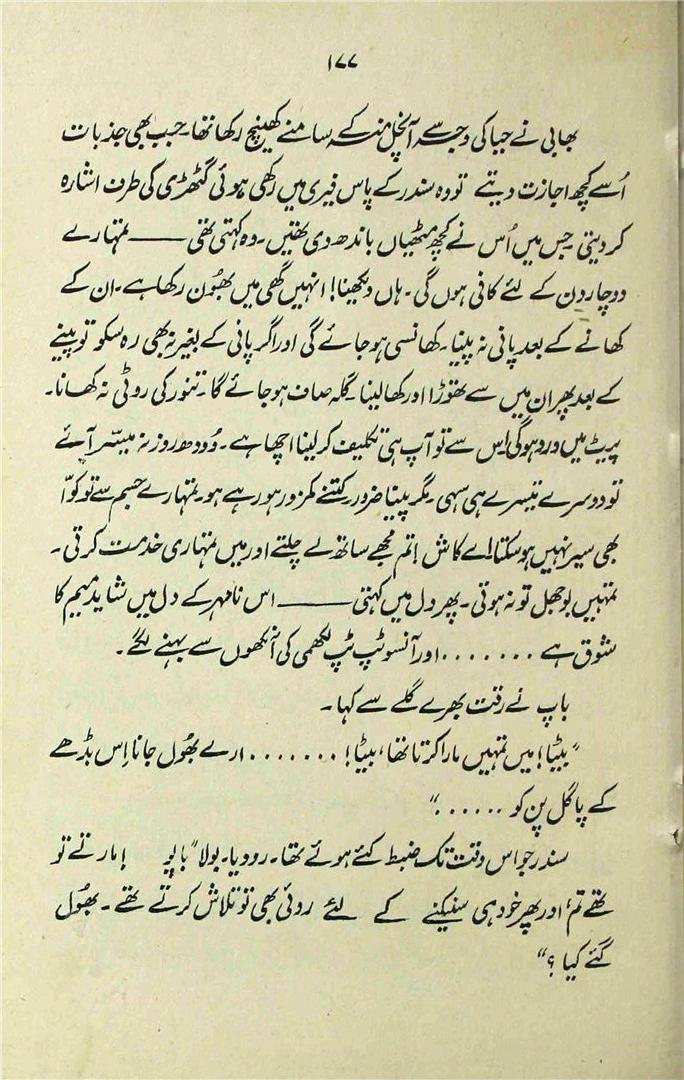 ۱۷۷
بھابی نے حیا کی وجہ سے آنچل منہ کے سامنے کھینچ رکھا تھا۔ جب بھی جذبات
اُسے کچھ اجازت دیتے تو وہ سندر کے پاس فیری میں رکھی ہوئی گٹھڑی کی طرف اشارہ
کر دیتی جس میں اُس نے کچھ مٹھیاں باندھ دی تھیں۔ وہ کہتی تھی ـــــــ تمہارے
دو چار دن کے لئے کافی ہوں گی۔ ہاں دیکھنا! انہیں گھی میں بھُون رکھا ہے۔ ان کے
کھانے کے بعد پانی نہ پینا۔ کھانسی ہو جائے گی اور اگر پانی کے بغیر نہ بھی رہ سکو تو پینے
کے بعد پھر ان میں سے تھوڑا اور کھا لینا۔ گلہ صاف ہو جائے گا۔ تنور کی روٹی نہ کھانا۔
پیٹ میں درد ہوگی اِس سے تو آپ ہی تکلیف کر لینا اچھا ہے۔ دُودھ روز نہ میسّر آئے
تو دوسرے تیسرے ہی سہی۔ مگر پینا ضرور کتنے کمزور ہو رہے ہو۔ تمہارے جسم سے تو کوّا
بھی سیر نہیں ہو سکتا! اے کاش! تم مجھے ساتھ لے چلتے اور میں تمہاری خدمت کرتی۔
تمہیں بوجھل تو نہ ہوتی۔ پھر دل میں کہتی ـــــــ اس نامہر کے دل میں شاید میم کا
شوق ہے ....... اور آنسو ٹپ ٹپ لکھمی کی آنکھوں سے بہنے لگے۔
باپ نے رقت بھرے گلے سے کہا۔
”بیٹا! میں تمہیں مارا کرتا تھا، بیٹا! ....... ارے بھُول جانا اِس بڈھے
کے پاگل پن کو ......“
سندر جو اس وقت تک ضبط کئے ہوئے تھا۔ رو دیا۔ بولا ”باپو! مارتے تو
تھے تم، اور پھر خود ہی سنیکنے کے لئے روئی بھی تو تلاش کرتے تھے۔ بھُول
گئے کیا ؟“